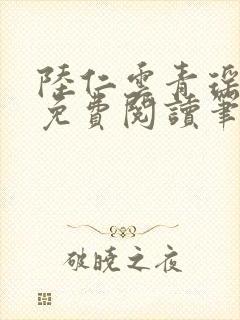 陸仁雲青瑶
免費閱讀筆
破曉之夜